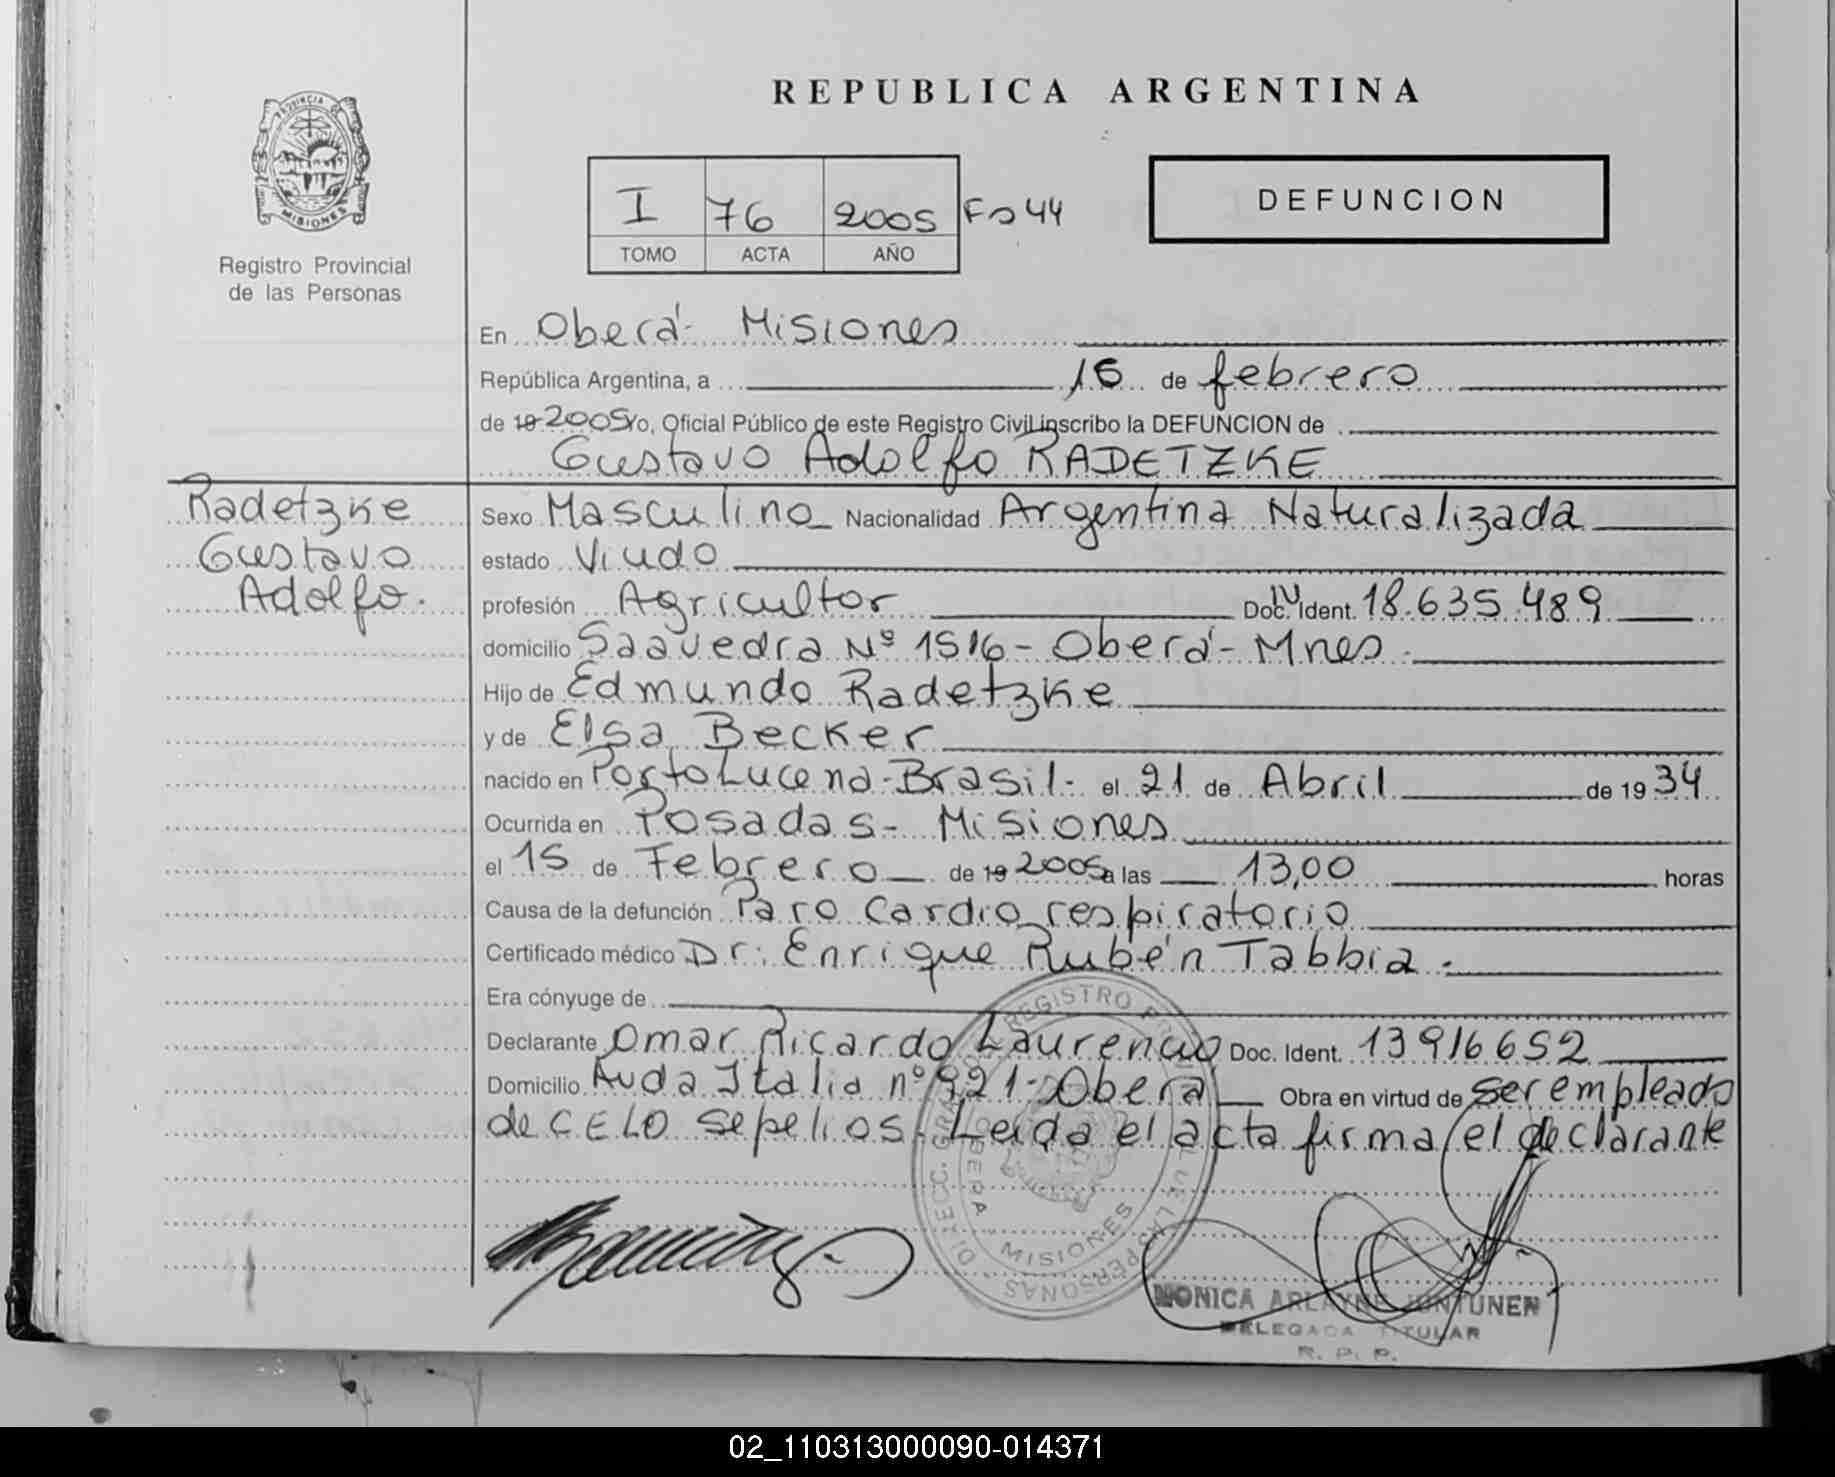 REPUBLICA ARGENTINA
PROVINCIA DE
MISIONES
Registro Provincial
de las Personas
I 76 2005 Fo 44
TOMO ACTA AÑO
DEFUNCION
En Oberá - Misiones
República Argentina, a 16 de febrero
de 19 2005 Yo, Oficial Público de este Registro Civil inscribo la DEFUNCION de
Gustavo Adolfo RADETZKE
Radetzke
Gustavo
Adolfo.
Sexo Masculino Nacionalidad Argentina Naturalizada
estado Viudo
profesión Agricultor Doc. Ident. 18.635.489
domicilio Saavedra Nº 1516 - Oberá - Mnes.
Hijo de Edmundo Radetzke
y de Elsa Becker
nacido en Porto Lucena - Brasil - el 21 de Abril de 1934
Ocurrida en Posadas - Misiones
el 15 de Febrero de 19 2005 a las 13,00 horas
Causa de la defunción Paro Cardio respiratorio
Certificado médico Dr: Enrique Rubén Tabbia.
Era cónyuge de
Declarante Omar Ricardo Laurencio Doc. Ident. 13916652
Domicilio Avda Italia nº 921 - Oberá Obra en virtud de ser empleado
de CELO sepelios. Leida el acta firma el declarante
DIRECC. GRAL. REGISTRO PROVINCIAL DE LAS PERSONAS
OBERA
MISIONES
MONICA ARLAYNE JUNTUNEN
DELEGADA TITULAR
R. P. P.
02_110313000090-014371